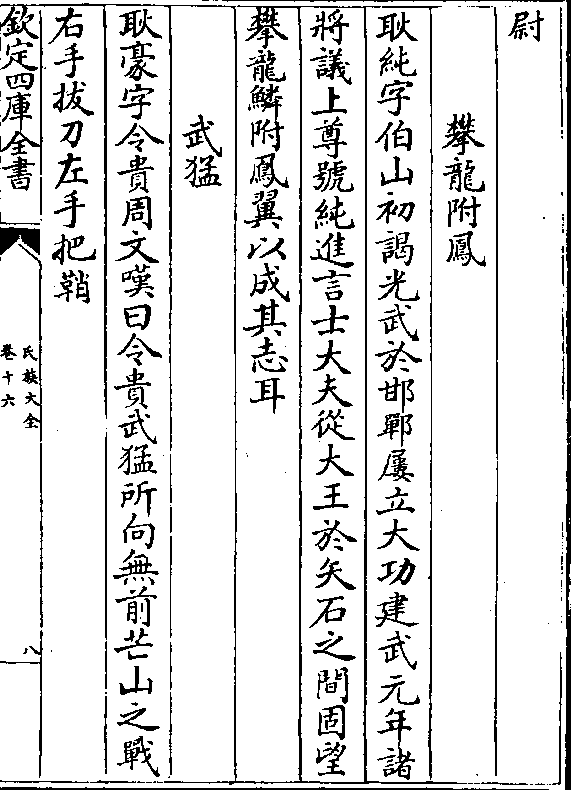 尉
攀龍附鳳
耿純字伯山初謁光武於邯鄲屢立大功建武元年諸
將議上尊號純進言士大夫從大王於矢石之間固望
攀龍鱗附鳳翼以成其志耳
武猛
耿豪字令貴周文嘆曰令貴武猛所向無前芒山之戰
右手拔刀左手把鞘
欽定四庫全書
氏族大全
卷十六
八